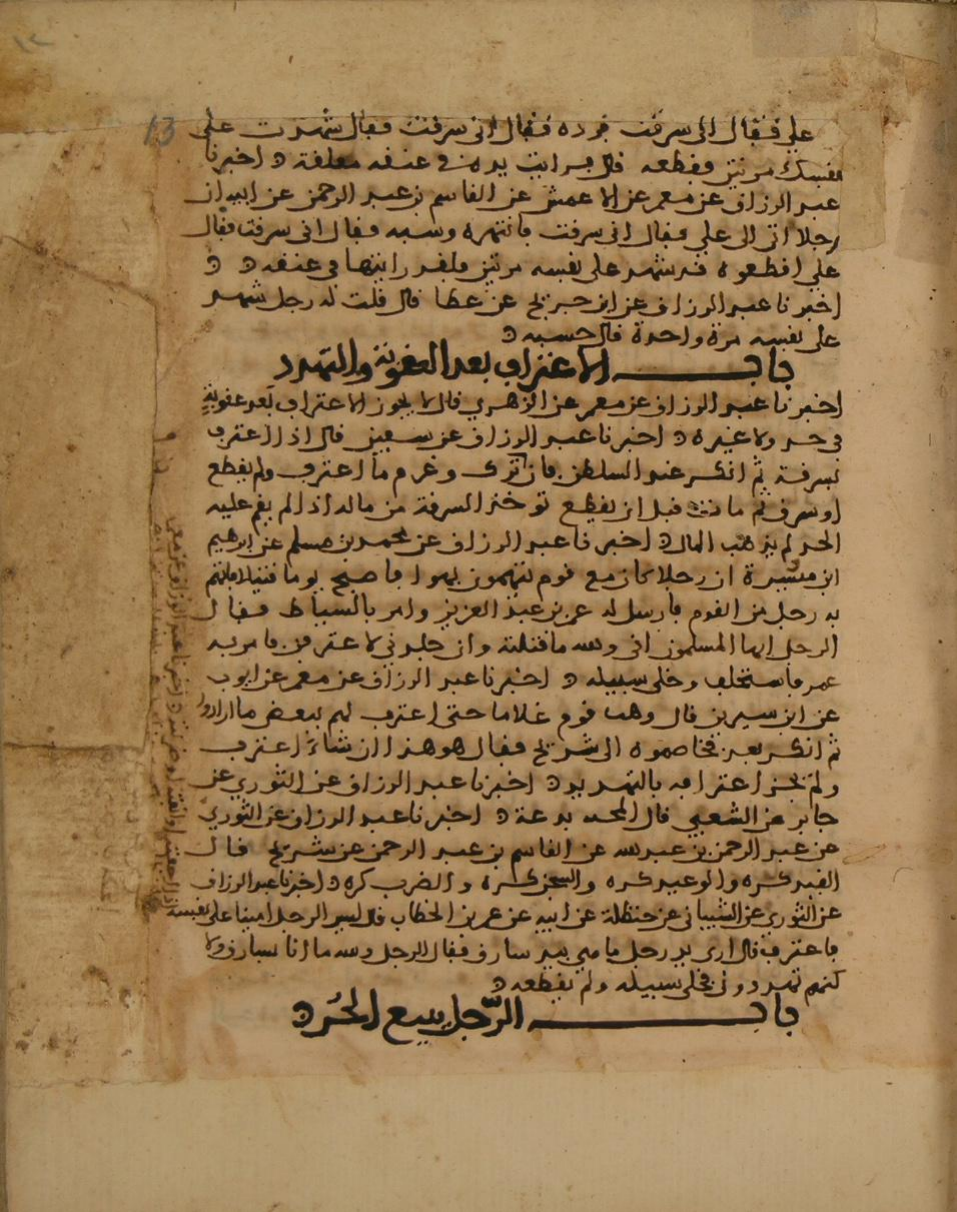 علي فقال اني سرقت فرده فقال اني سرقت فقال شهدت على
نفسك مرتين فقطعه قال فرايت يده في عنقه معلقة اخبرنا
عبد الرزاق عن معمر عن الاعمش عن القاسم بن عبد الرحمن عن ابيه ان
رجلا اتى الى علي فقال اني سرقت فانتهره وسبه فقال اني سرقت فقال
علي اقطعوه قد شهد على نفسه مرتين فلقد رايتها في عنقه
اخبرنا عبد الرزاق عن ابن جريج عن عطا قال قلت له رجل شهد
على نفسه مرة واحدة قال حسبه
باب الاعتراف بعد العقوبة والتهدد
اخبرنا عبد الرزاق عن معمر عن الزهري قال لا يجوز الاعتراف بعد عقوبة
في حد ولا غيره اخبرنا عبد الرزاق عن سفين قال اذا اعترف
بسرقة ثم انكر عند السلطن فان ترك وغرم ما اعترف ولم يقطع
او سرق ثم مات قبل ان يقطع توخذ السرقة من ماله اذا لم يقم عليه
الحد لم يذهب المال اخبرنا عبد الرزاق عن محمد بن مسلم عن ابرهيم
ابن ميسرة ان رجلا كان مع قوم يتهمون بهوا فاصبح يوما قتيلا فاتهم
به رجل من القوم فارسل له عمر بن عبد العزيز وامر بالسياط فقال
الرجل ايها المسلمون اني والله ما قتلته وان جلدني لاعترفن فامر به
عمر فاستحلف وخلى سبيله اخبرنا عبد الرزاق عن معمر عن ايوب
عن ابن سيرين قال وهب قوم غلاما حتى اعترف لهم ببعض ما ارادوا
ثم انكر بعد فخاصموه الى شريح فقال هو هذا ان شاء اعترف
ولم يجز اعترافه بالتهديد اخبرنا عبد الرزاق عن الثوري عن
جابر عن الشعبي قال المحنة بدعة اخبرنا عبد الرزاق عن الثوري
عن عبد الرحمن بن عبد الله عن القاسم بن عبد الرحمن عن شريح قال
القيد كره والوعيد كره والسجن كره والضرب كره اخبرنا عبد الرزاق
عن الثوري عن الشيباني عن حنظلة عن ابيه عن عمر بن الخطاب قال ليس الرجل امينا على نفسه
فاعترف قال ارى يد رجل ما هي بيد سارق فقال الرجل والله ما انا بسارق ولا
كنهم تهددوني فخلى سبيله ولم يقطعه
باب الرجل يبيع الحر
13